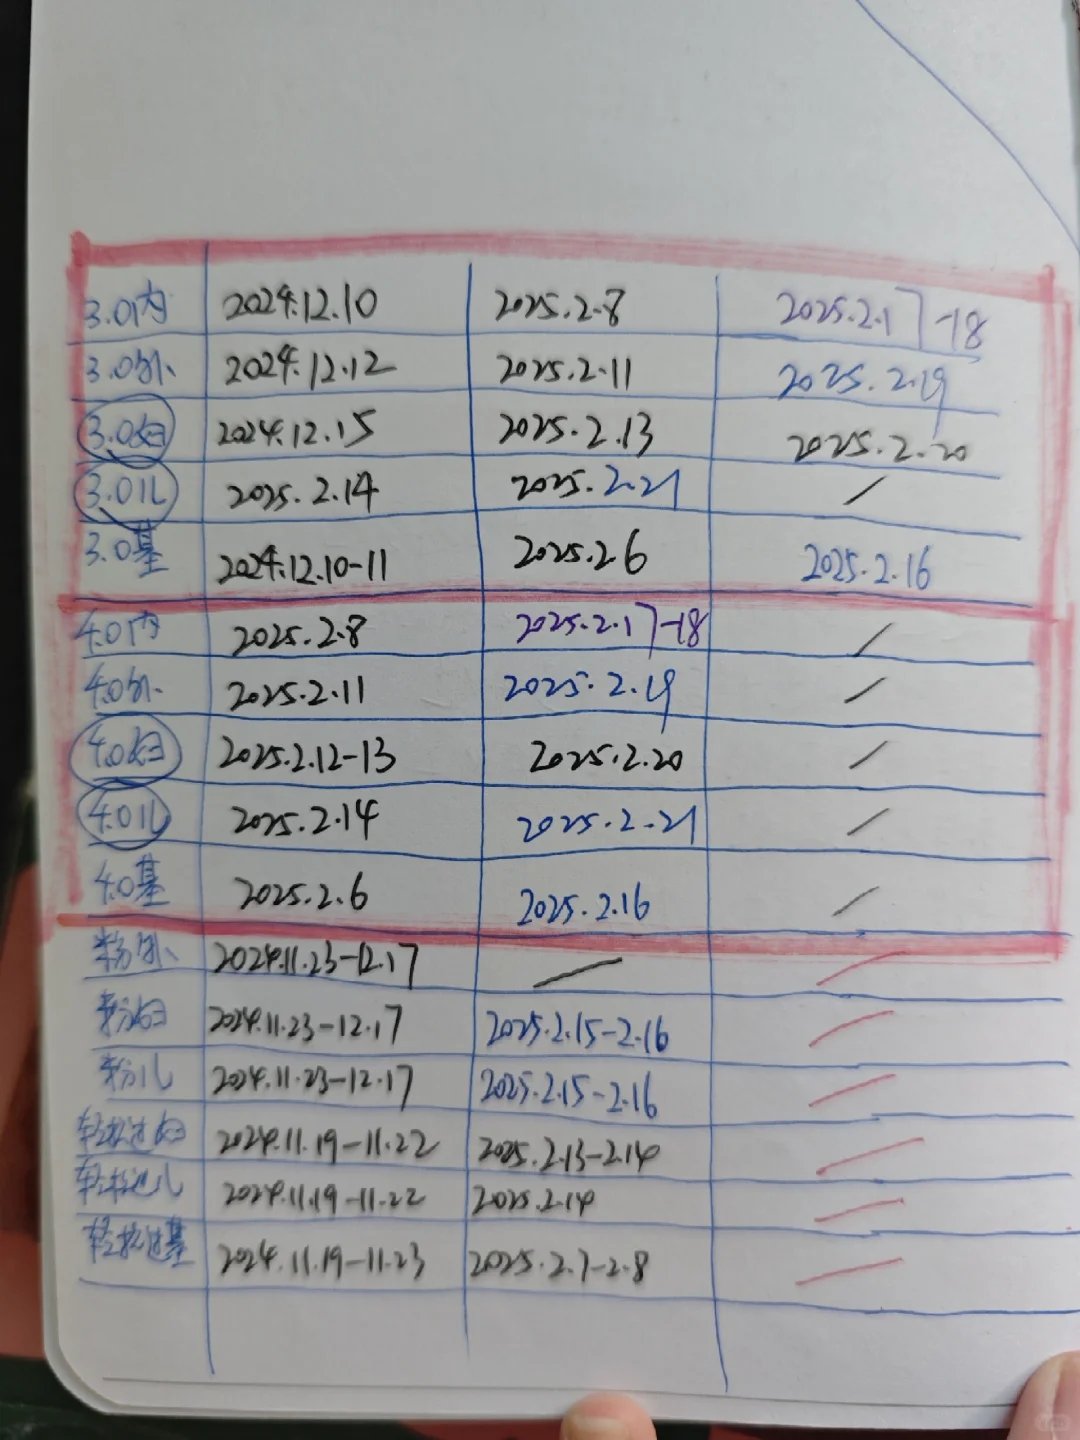 3.0内 2024.12.10 2025.2.8 2025.2.17-18
3.0外 2024.12.12 2025.2.11 2025.2.19
3.0妇 2024.12.15 2025.2.13 2025.2.20
3.0儿 2025.2.14 2025.2.21 /
3.0基 2024.12.10-11 2025.2.6 2025.2.16
4.0内 2025.2.8 2025.2.17-18 /
4.0外 2025.2.11 2025.2.19 /
4.0妇 2025.2.12-13 2025.2.20 /
4.0儿 2025.2.14 2025.2.21 /
4.0基 2025.2.6 2025.2.16 /
粉外 2024.11.23-12.17 / /
粉妇 2024.11.23-12.17 2025.2.15-2.16 /
粉儿 2024.11.23-12.17 2025.2.15-2.16 /
轻松过妇 2024.11.19-11.22 2025.2.13-2.14 /
轻松过儿 2024.11.19-11.22 2025.2.14 /
轻松过基 2024.11.19-11.23 2025.2.7-2.8 /